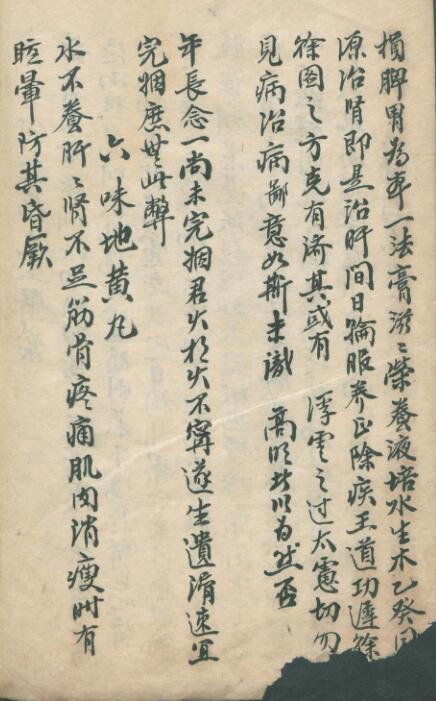 損脾胃為本一法膏滋〻榮養液培水生木乙癸同
源治腎即是治肝間日輪服養正除疾王道功遲徐
徐圖之方克有濟其或有 浮雲之过太虛切勿
見病治病鄙意如斯未識 高明者以為然否
午長念一尚未完姻君火相火不寧遂生遺滑速宜
完姻庶無此弊
六味地黄丸
水不養肝〻腎不足筋骨疼痛肌肉消瘦时有
眩暈防其昏厥